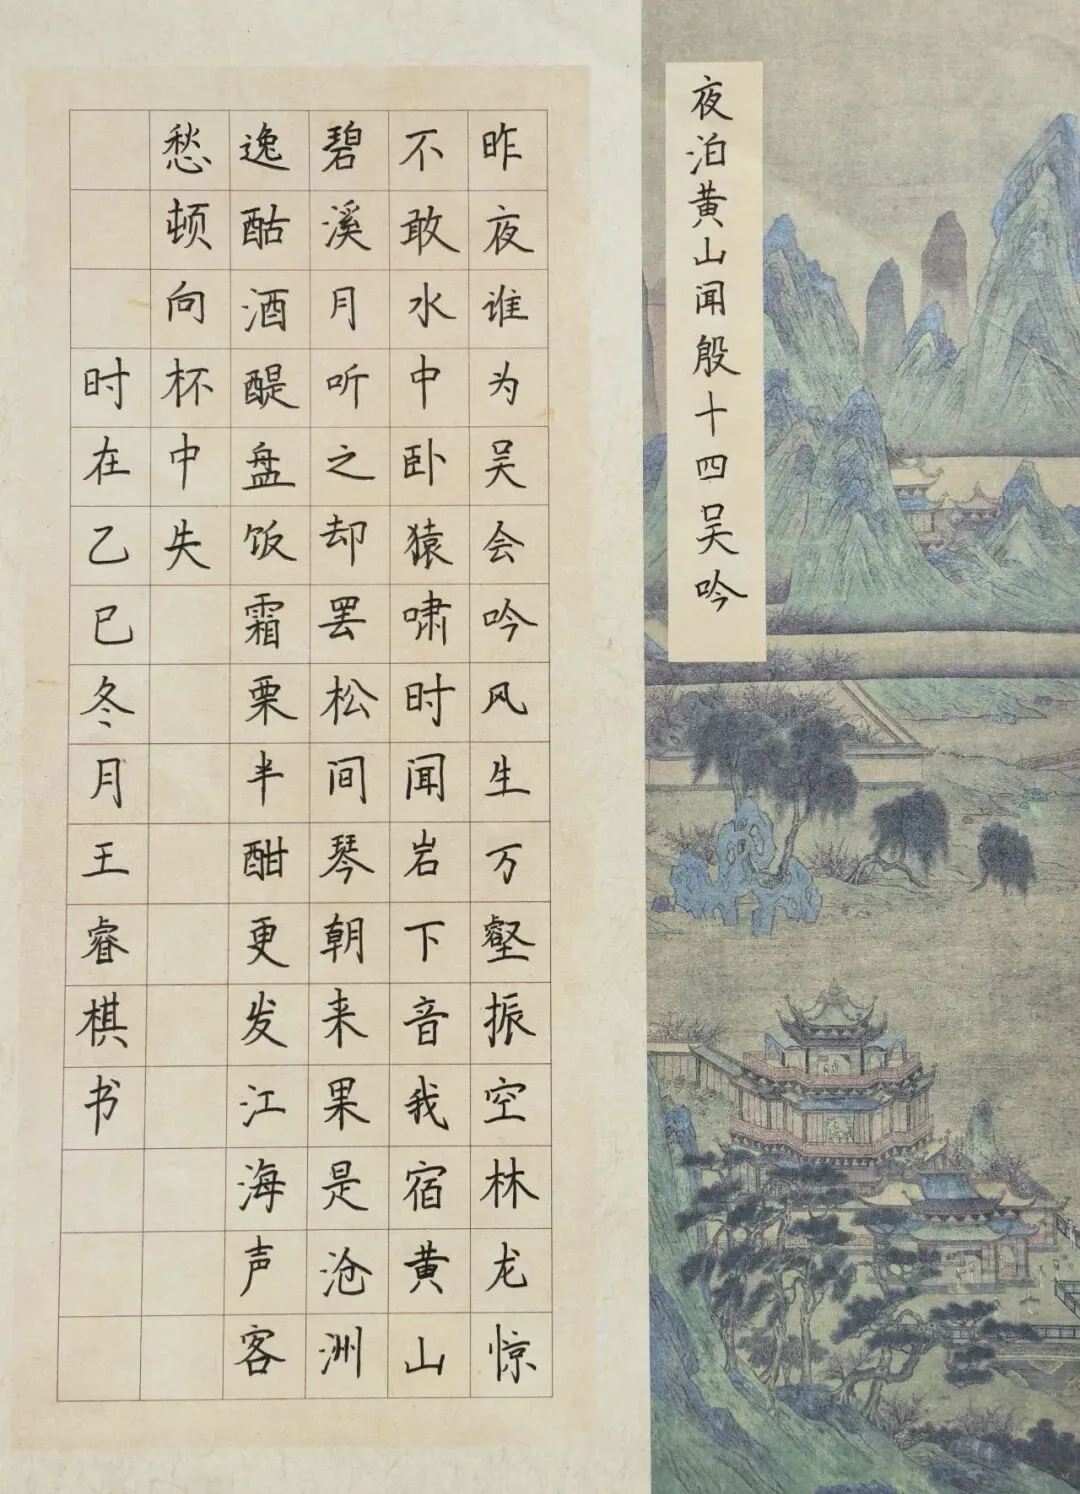 夜泊黄山闻殷十四吴吟
昨夜谁为吴会吟风生万壑振空林龙惊
不敢水中卧猿啸时闻岩下音我宿黄山
碧溪月听之却罢松间琴朝来果是沧洲
逸酤酒醍盘饭霜栗半酣更发江海声客
愁顿向杯中失
时在乙巳冬月王睿棋书